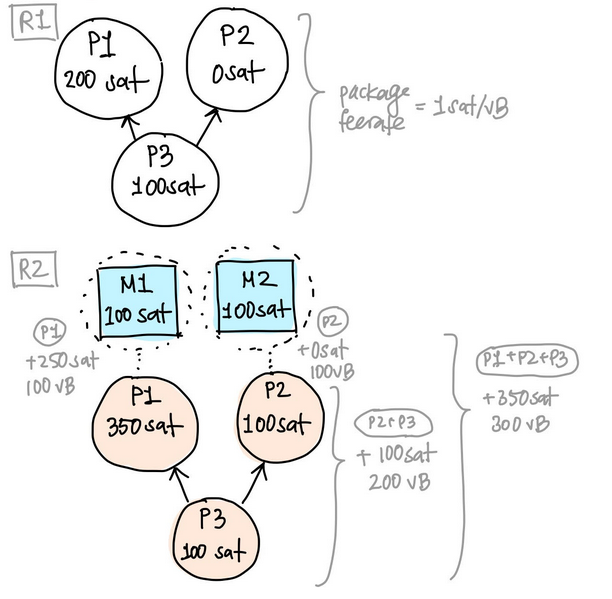 R1
P1
200 sat
P2
0sat
P3
100sat
package
feerate = 1sat/vB
R2
M1
100 sat
M2
100sat
P1
+250sat
100 vB
P2
+0sat
100vB
P1
350sat
P2
100sat
P3
100 sat
P2+P3
+ 100sat
200 vB
P1+P2+P3
+350sat
300 vB